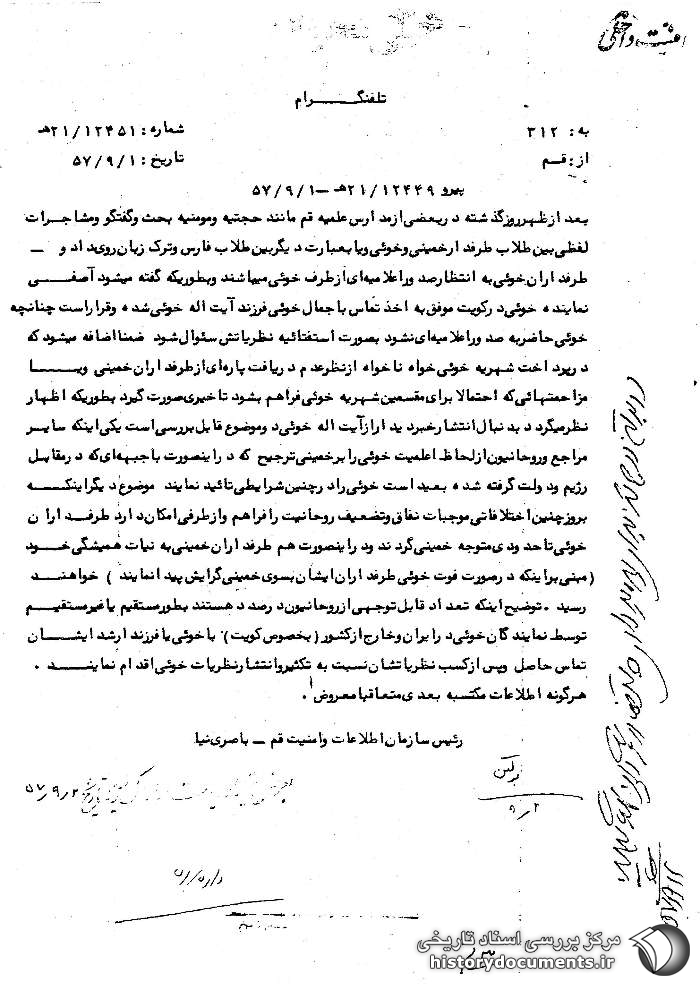 امنیت داخلی
تلفنگرام
به: ۳۱۲
شماره: ۲۱/۱۲۴۵۱هـ
از: قم
تاریخ: ۵۷/۹/۱
پیرو ۲۱/۱۲۴۴۹هـ – ۵۷/۹/۱
بعد از ظهر روز گذشته در بعضی از مدارس علمیه قم مانند حجتیه و مومنیه بحث و گفتگو و مشاجرات
لفظی بین طلاب طرفدار خمینی و خوئی و یا بعبارت دیگر بین طلاب فارس و ترک زبان روی داد و –
طرفداران خوئی به انتظار صدور اعلامیه‌ای از طرف خوئی میباشند و بطوریکه گفته میشود آصفی
نماینده خوئی در کویت موفق به اخذ تماس با جمال خوئی فرزند آیت اله خوئی شده و قرار است چنانچه
خوئی حاضر به صدور اعلامیه‌ای نشود بصورت استفتائیه نظریاتش سئوال شود ضمنا اضافه میشود که
در پرداخت شهریه خوئی خواه ناخواه از نظر عدم دریافت پاره‌ای از طرفداران خمینی و یا
مزاحمتهائی که احتمالا برای مقسمین شهریه خوئی فراهم بشود تاخیری صورت گیرد بطوریکه اظهار
نظر میگردد بدنبال انتشار خبر دیدار از آیت اله خوئی دو موضوع قابل بررسی است یکی اینکه سایر
مراجع و روحانیون از لحاظ اعلمیت خوئی را بر خمینی ترجیح که در اینصورت با جبهه‌ای که در مقابل
رژیم و دولت گرفته شده بعید است خوئی را در چنین شرایطی تائید نمایند موضوع دیگر اینکه
بروز چنین اختلافاتی موجبات نفاق و تضعیف روحانیت را فراهم و از طرفی امکان دارد طرفداران
خوئی تا حدودی متوجه خمینی گردند و در اینصورت هم طرفداران خمینی به نیات همیشگی خود
(مبنی بر اینکه در صورت فوت خوئی طرفداران ایشان بسوی خمینی گرایش پیدا نمایند) خواهند
رسید . توضیح اینکه تعداد قابل توجهی از روحانیون در صدد هستند بطور مستقیم یا غیر مستقیم
توسط نمایندگان خوئی در ایران و خارج از کشور (بخصوص کویت) با خوئی یا فرزند ارشد ایشان
تماس حاصل و پس از کسب نظریاتشان نسبت به تکثیر و انتشار نظریات خوئی اقدام نمایند .
هرگونه اطلاعات مکتسبه بعدی متعاقبا معروض
رئیس سازمان اطلاعات و امنیت قم – باصری نیا
۵۷/۹/۲
۹/۲
مرکز بررسی اسناد تاریخی
historydocuments.ir